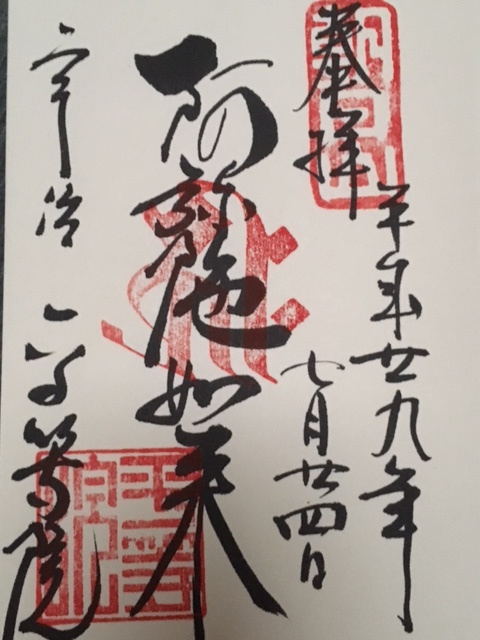 奉拝
平成廿九年
七月廿四日
阿弥陀如来
宇治 平等院